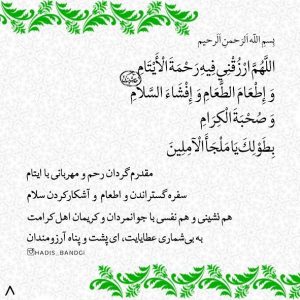 بِسمِ اللّٰهِ اَلرَحمنِ اَلرحیم
اللَّهُمَّ ارْزُقْنِي فِيهِ رَحْمَةَ الْأَيْتَامِ
وَ إِطْعَامَ الطَّعَامِ وَ إِفْشَاءَ السَّلامِ
وَ صُحْبَةَ الْكِرَامِ
بِطَوْلِكَ يَا مَلْجَأَ الْآمِلِينَ
مقدرم گردان رحم و مهربانی با ایتام
سفره گستراندن و اطعام و آشکارکردن سلام
هم نشینی و هم نفسی با جوانمردان و کریمان اهل کرامت
به بی‌شماری عطایایت، ای پشت و پناه آرزومندان
HADIS_BANDGI
۸